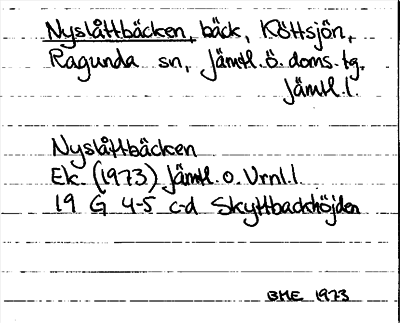 Nyslåttbäcken, bäck, Köttsjön,
Ragunda sn, Jämtl.ö.doms.tg.
Jämtl.l.
Nyslåttbäcken
Ek. (1973) Jämtl.o.Vrnl.l
19 G 4-5 c-d Skyttbackhöjden
BME 1973